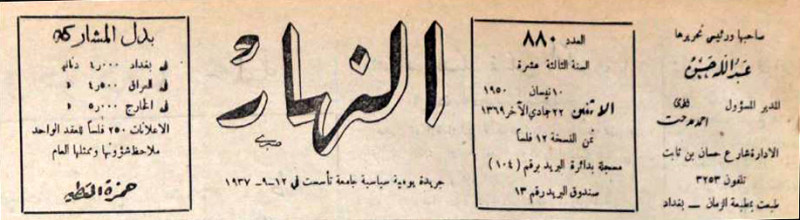 صاحبها ورئيس تحريرها
عبد الله حسن
المدير المسؤول
احمد مدحت
الادارة شارع حسان بن ثابت
تلفون ٣٢٥٣
طبعت بمطبعة الزمان — بغداد
العدد ٨٨٠
السنة الثالثة عشرة
١٠ نيسان ١٩٥٠
الاثنين ٢٢ جمادي الآخر ١٣٦٩
ثمن النسخة ١٢ فلساً
مسجلة بدائرة البريد برقم (١٠٤)
صندوق البريد رقم ١٣
النهار
جريدة يومية سياسية جامعة تأسست في ١٢-٩-١٩٣٧
بدل المشاركة
في بغداد ٤٫٠٠٠
في العراق ٤٫٥٠٠
في الخارج ٥٫٠٠٠
الاعلانات ٢٥٠ فلساً للعقد الواحد
ملاحظ شؤونها وممثلها العام
حمزة